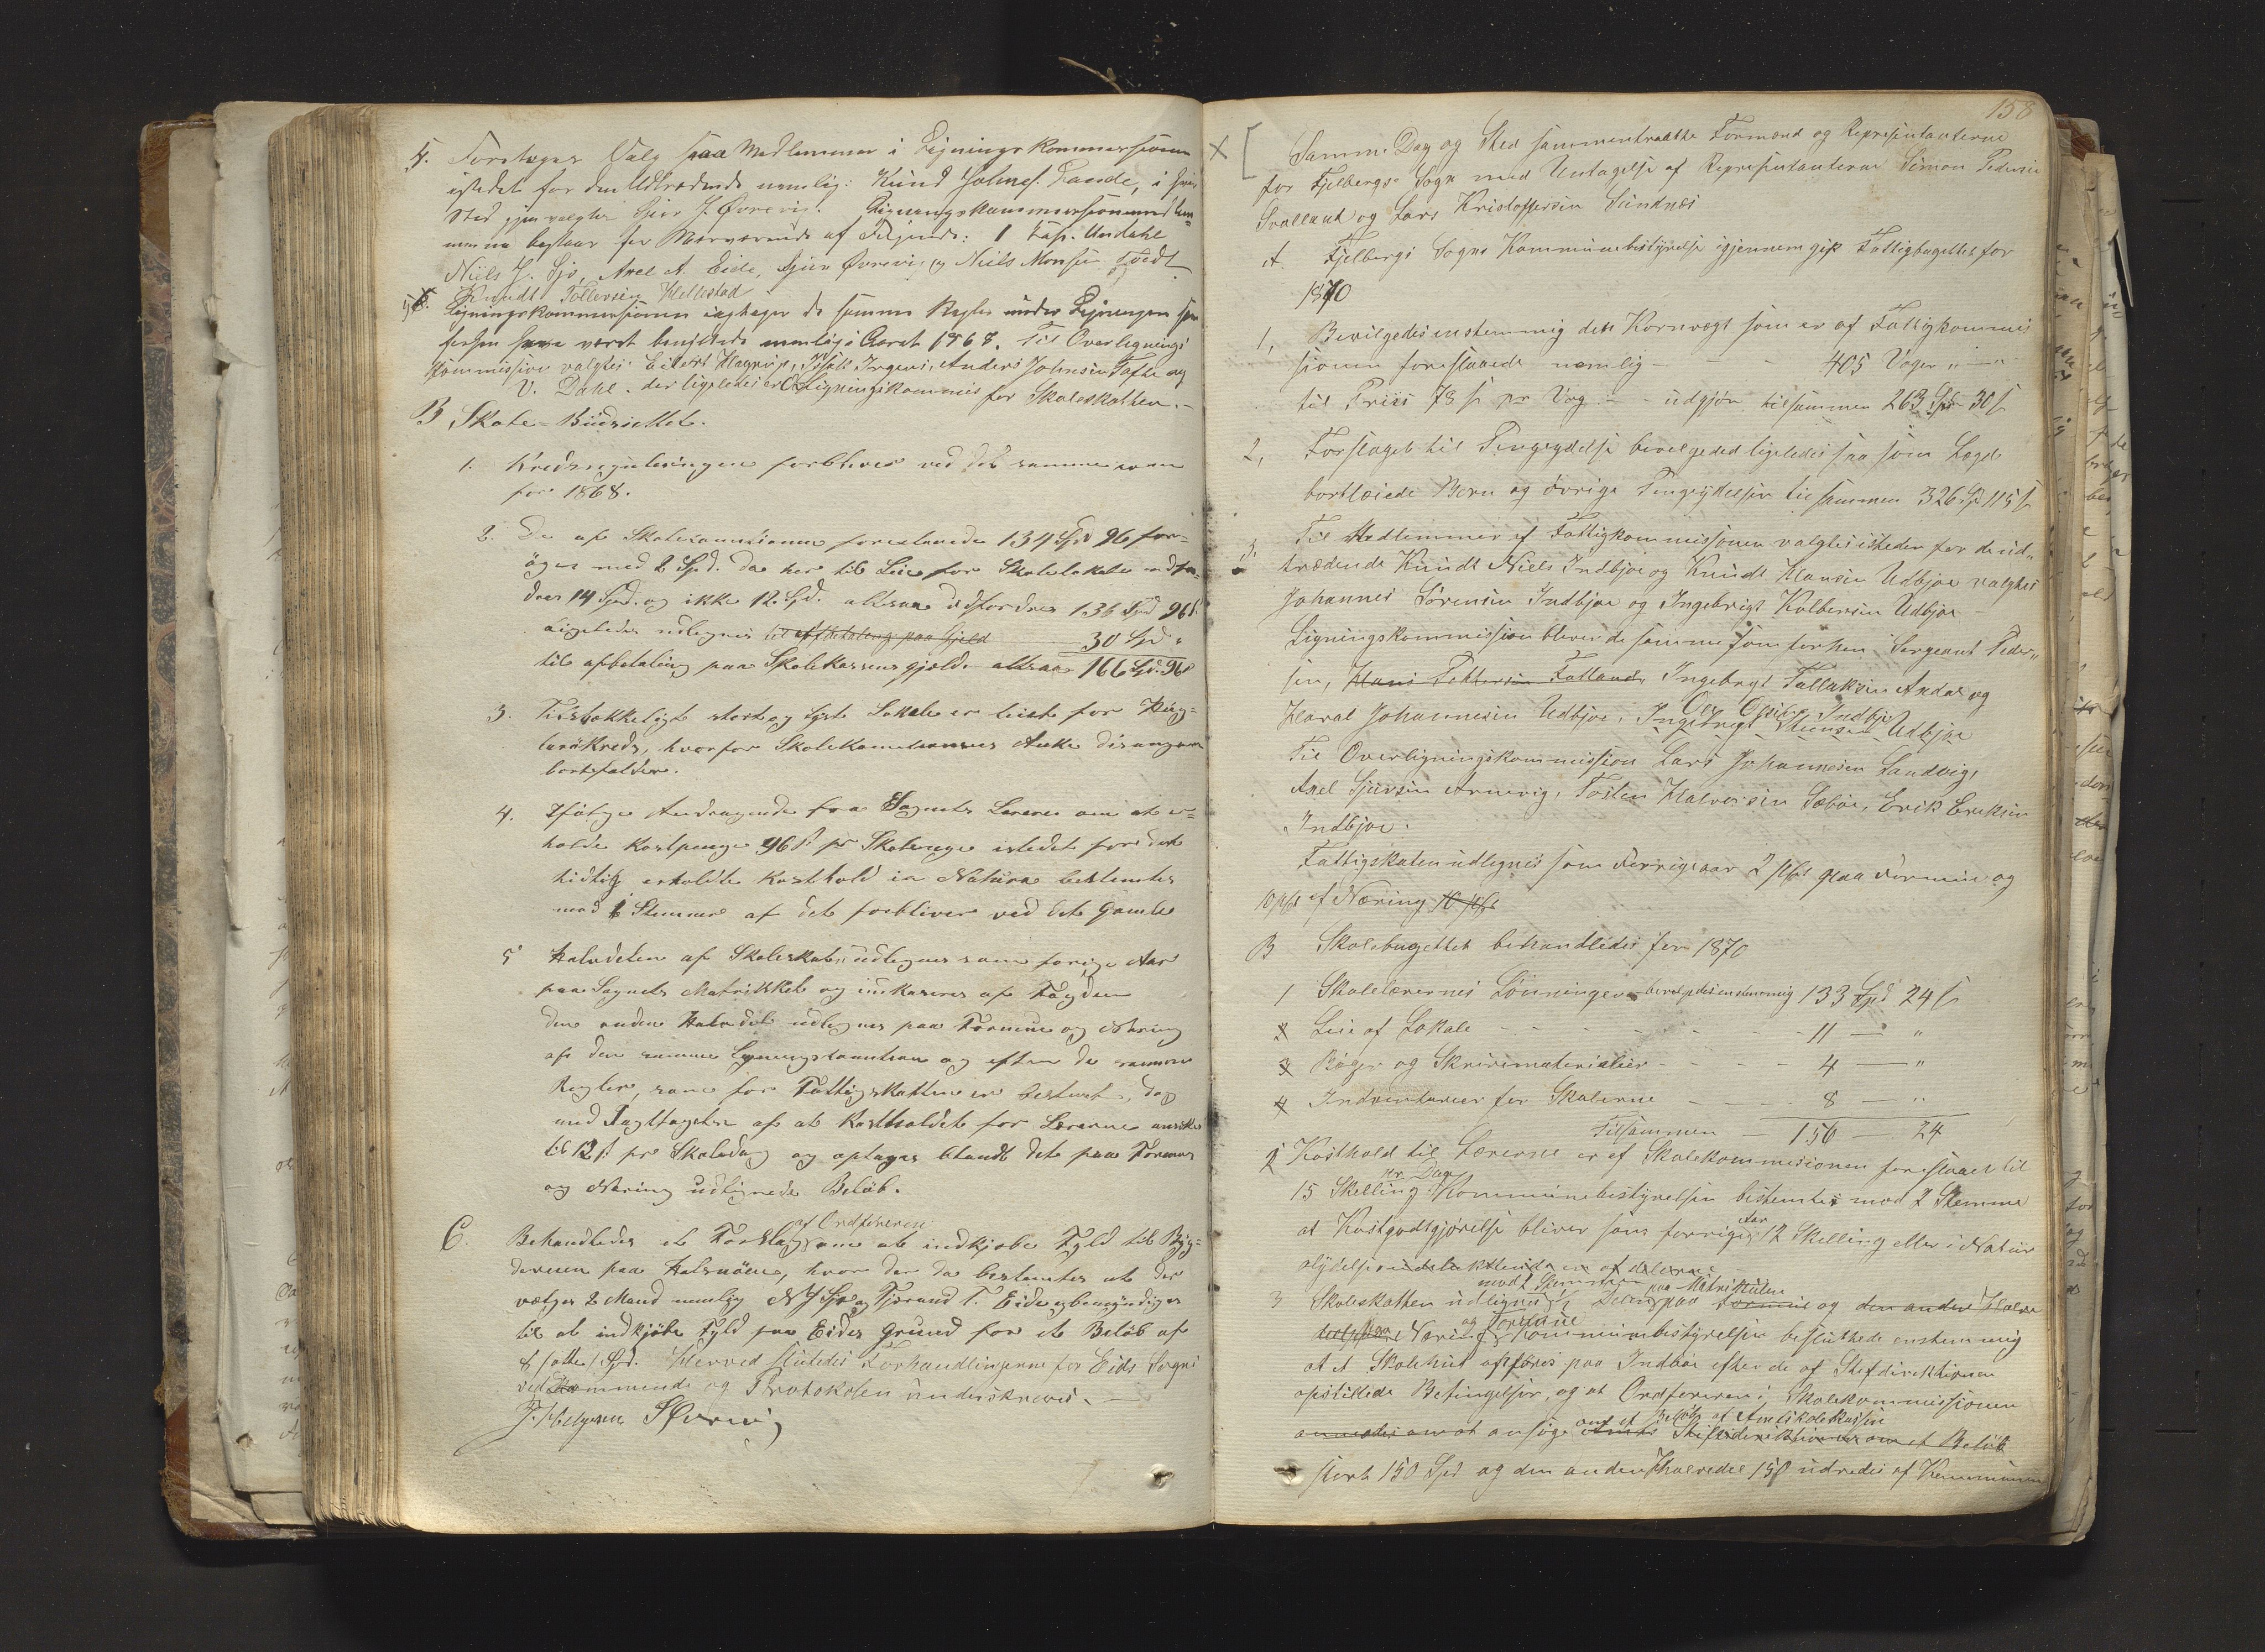 4. Foretoges Valg paa Medlemmer i Ligningskommersionen
istedet for den Udtrædende nemlig: Knud Johnes. Taarde, i hvis
Sted gjenvalgtes Sjur J. Øvrevig. Ligningskommersionens Med lem-
mer nu bestaar for Nærværende af Følgende: 1 Lars. Undahl
Niels J. Sjo, Axel A. Eide, Sjur Øvrevig og Niels Monsen Tvedt
og Knudt Tollevsen Hellestad
5. Ligningskommersionen iagtager de samme Regler under Ligningen som
forhen have været benyttede nemlig i Aaret 1868. Til Overlignings
kommission valgtes Eilert Hagenæs, Isak Ingvers, Anders Johnsen Tofte og
V. Dahl. der ligeledes er O Ligningskommis for Skoleskatten.
B Skole-Büdsiettet.
1. Kredsreguleringen forblives ved det samme som
for 1868.
2. De af Skolecomisionen foreslaaede 134 Spd 96 for-
øges med 2 Spd. da her til Leie for Skolelokale udfor-
dres 14 Spd. og ikke 12 Spd. altsaa udfordres 136 Spd 96 s.
Ligeledes udlignes til afbetaling paa Gjeld 30 Spd "
til afbetaling paa Skolekassens gjæld altsaa 166 Spd. 96 s
3. Tilstrækkeligt stort og lyst Lokale er leiet for Kreds, hvorfor Skolekomissionens Anke desangaaende
bortfalder.
4. Ifølge Andragende fra Sognets Lærere om at er-
holde Kostpenge 96 s pr Skoleuge istedet for det
hidtil erholdte Kosthold in Natura bestemtes
med 6 Stemmer af det forbliver ved det gamle
5 Halvdelen af Skoleskatten udlignes som forrige Aar
paa Sognets Matrikkel og inkaseres af Fogden
den anden Halvdel udlignes paa Formue og Næring
af den samme Ligningskomission og efter de samme
Regler, som for Fattigskatten er bestemt, dog
med Iagttagelse af at Kostholdet for Lærerne ansættes
til 12 s pr Skoledag og optages blandt det paa Formue
og Næring udlignede Beløb.
C. Behandledes et Forslag af Ordføreren om at indkjøbe Fyld til Byg-
deveien paa Halsnøen, hvor der da bestemtes at der
vælges 2 Mand nemlig N J Sjo og Tjerand T. Eide bemyndiges
til at indkjøbe Fyld paa Eides Grund for et Beløb af
8 /otte/ Spd. Herved sluttedes Forhandlingerne for Eids Sogns
ved kommende og Protokolen underskreves.
J. Helgesen S Øvrevig
158
Samme Dag og Sted sammentraadte Formænd og Repræsentanterne
for Fjelbergs Sogn med Untagelse af Representanterne Simon Pedersen
Svalland og Lars Kristoffersen Sundnæs
A. Fjelbergs Sogns Kommunebestyrelse igjennemgik Fattigbugettet for
1870
1, Bevilgedes enstemmig den Kornvægt som er af Fattigkommis
sionen foreslaaede nemlig - - - 405 Voger " — "
til Priis 78 s pr Vog - - udgjør tilsammen 263 Spd 30 s
2, Forslaget til Pengeydelse bevilgedes ligeledes saa som Lægd
bortleiede Børn og øvrige Pengeydelser tilsammen 326 Sp 115 s
3. Til Medlemmer af Fattigkommissjonen valgtes isteden for de ud-
trædende Knudt Niels Indbjoe og Knudt Hansen Udbjoe valgtes
Johannes Sørensen Indbjoe og Ingebrigt Kolbensen Udbjoe -
Ligningskommissjon bliver de samme som forhen Sergeant Peder-
sen, Hans Pettersen Fatland, Ingebrigt Tallaksen Andal og
Ole Olsen Indbjo
Haral Johannesen Udbjoe, Ingebrigt Steensen Udbjoe
Til Overligningskommission Lars Johannesen Sandvig,
Axel Sjursen Arnevig, Tosten Halvorsen Sæbøe, Erik Eriksen
Indbjoe.
Fattigskaten udlignes som forrige aar 2 paa Formue og
10 af Næring 10
B Skolebugettet behandledes for 1870
1 Skolelærernes Lønninger bevilgedes enstemmig 133 Spd 24 s
2 Leie af Lokale - - - 11 — "
3 Bøger og Skrivematerialier - - - 4 — "
4 Indventarier for Skolerne — 8 — "
Tilsammen — 156 — 24
2 Kosthold til Lærerne er af Skolekommisionen foreslaaet til
15 Skelling pr Dag Kommunebestyrelsen bestemtes mod 2 Stemme
at Kostgodtgjørelse bliver som forrige Aar 12 Skelling eller i Natur
ydelse
3 Skoleskatten udlignes mod 1 Stemme ½ Delen paa Matrikulen paa Formue og den anden Halv
deel paa Næring og Formue Kommunebestyrelsen besluttede enstemmig
at et Skolehus opføres paa Indbøe efter de af Stifdirektionen
opstillede Betingelser, og at Ordføreren i Skolekommissionen
anmodes om at ansøge Amts Stiftsdirektionen om et Beløb
om et Beløb af Amtskolekassen
stort 150 Spd og den anden Halvedel 150 udredes af Kommunen